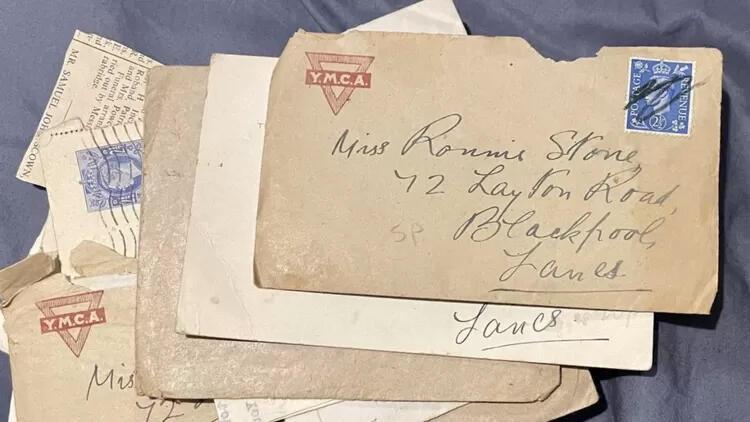 Y.M.C.A.
POSTAGE REVENUE
2½
Miss Ronnie Stone,
72 Layton Road,
Blackpool,
Lancs
SP
Lancs
Y.M.C.A.
Mis
72
MR. SAMUEL JOH
COWN